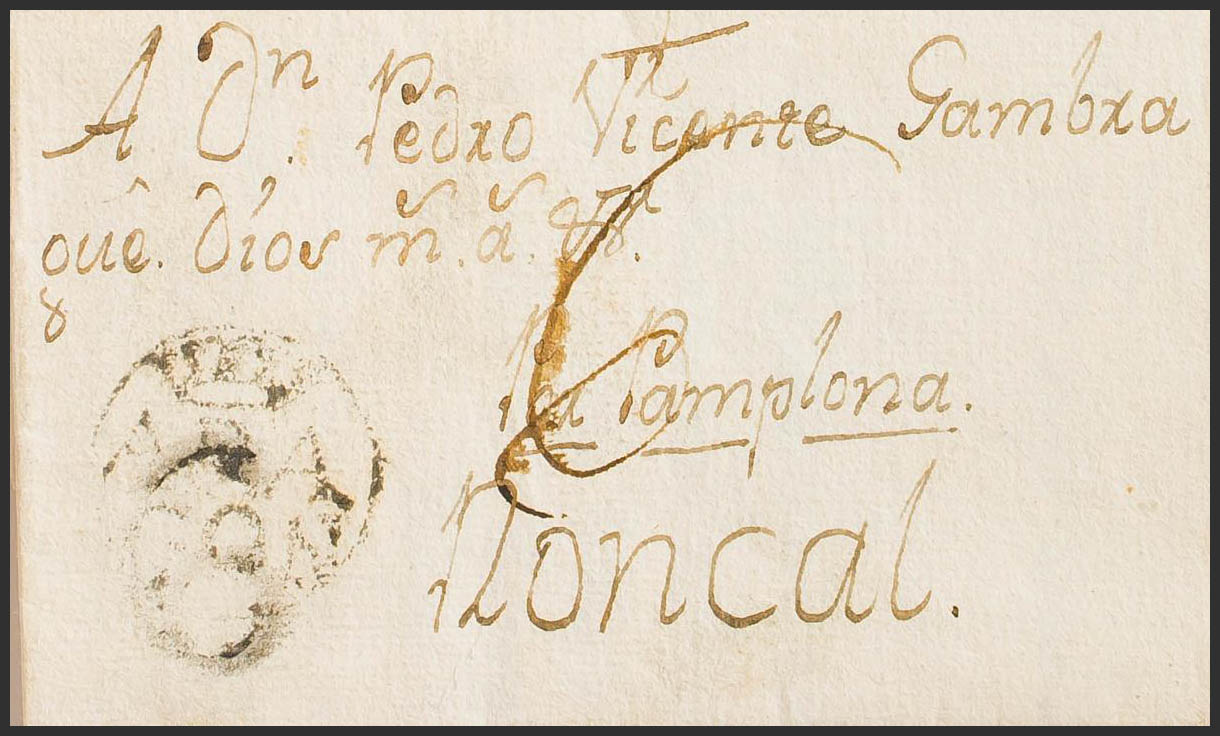 A Dn. Pedro Vicente Gambra
que. Dios m. a.
Pamplona.
Roncal.